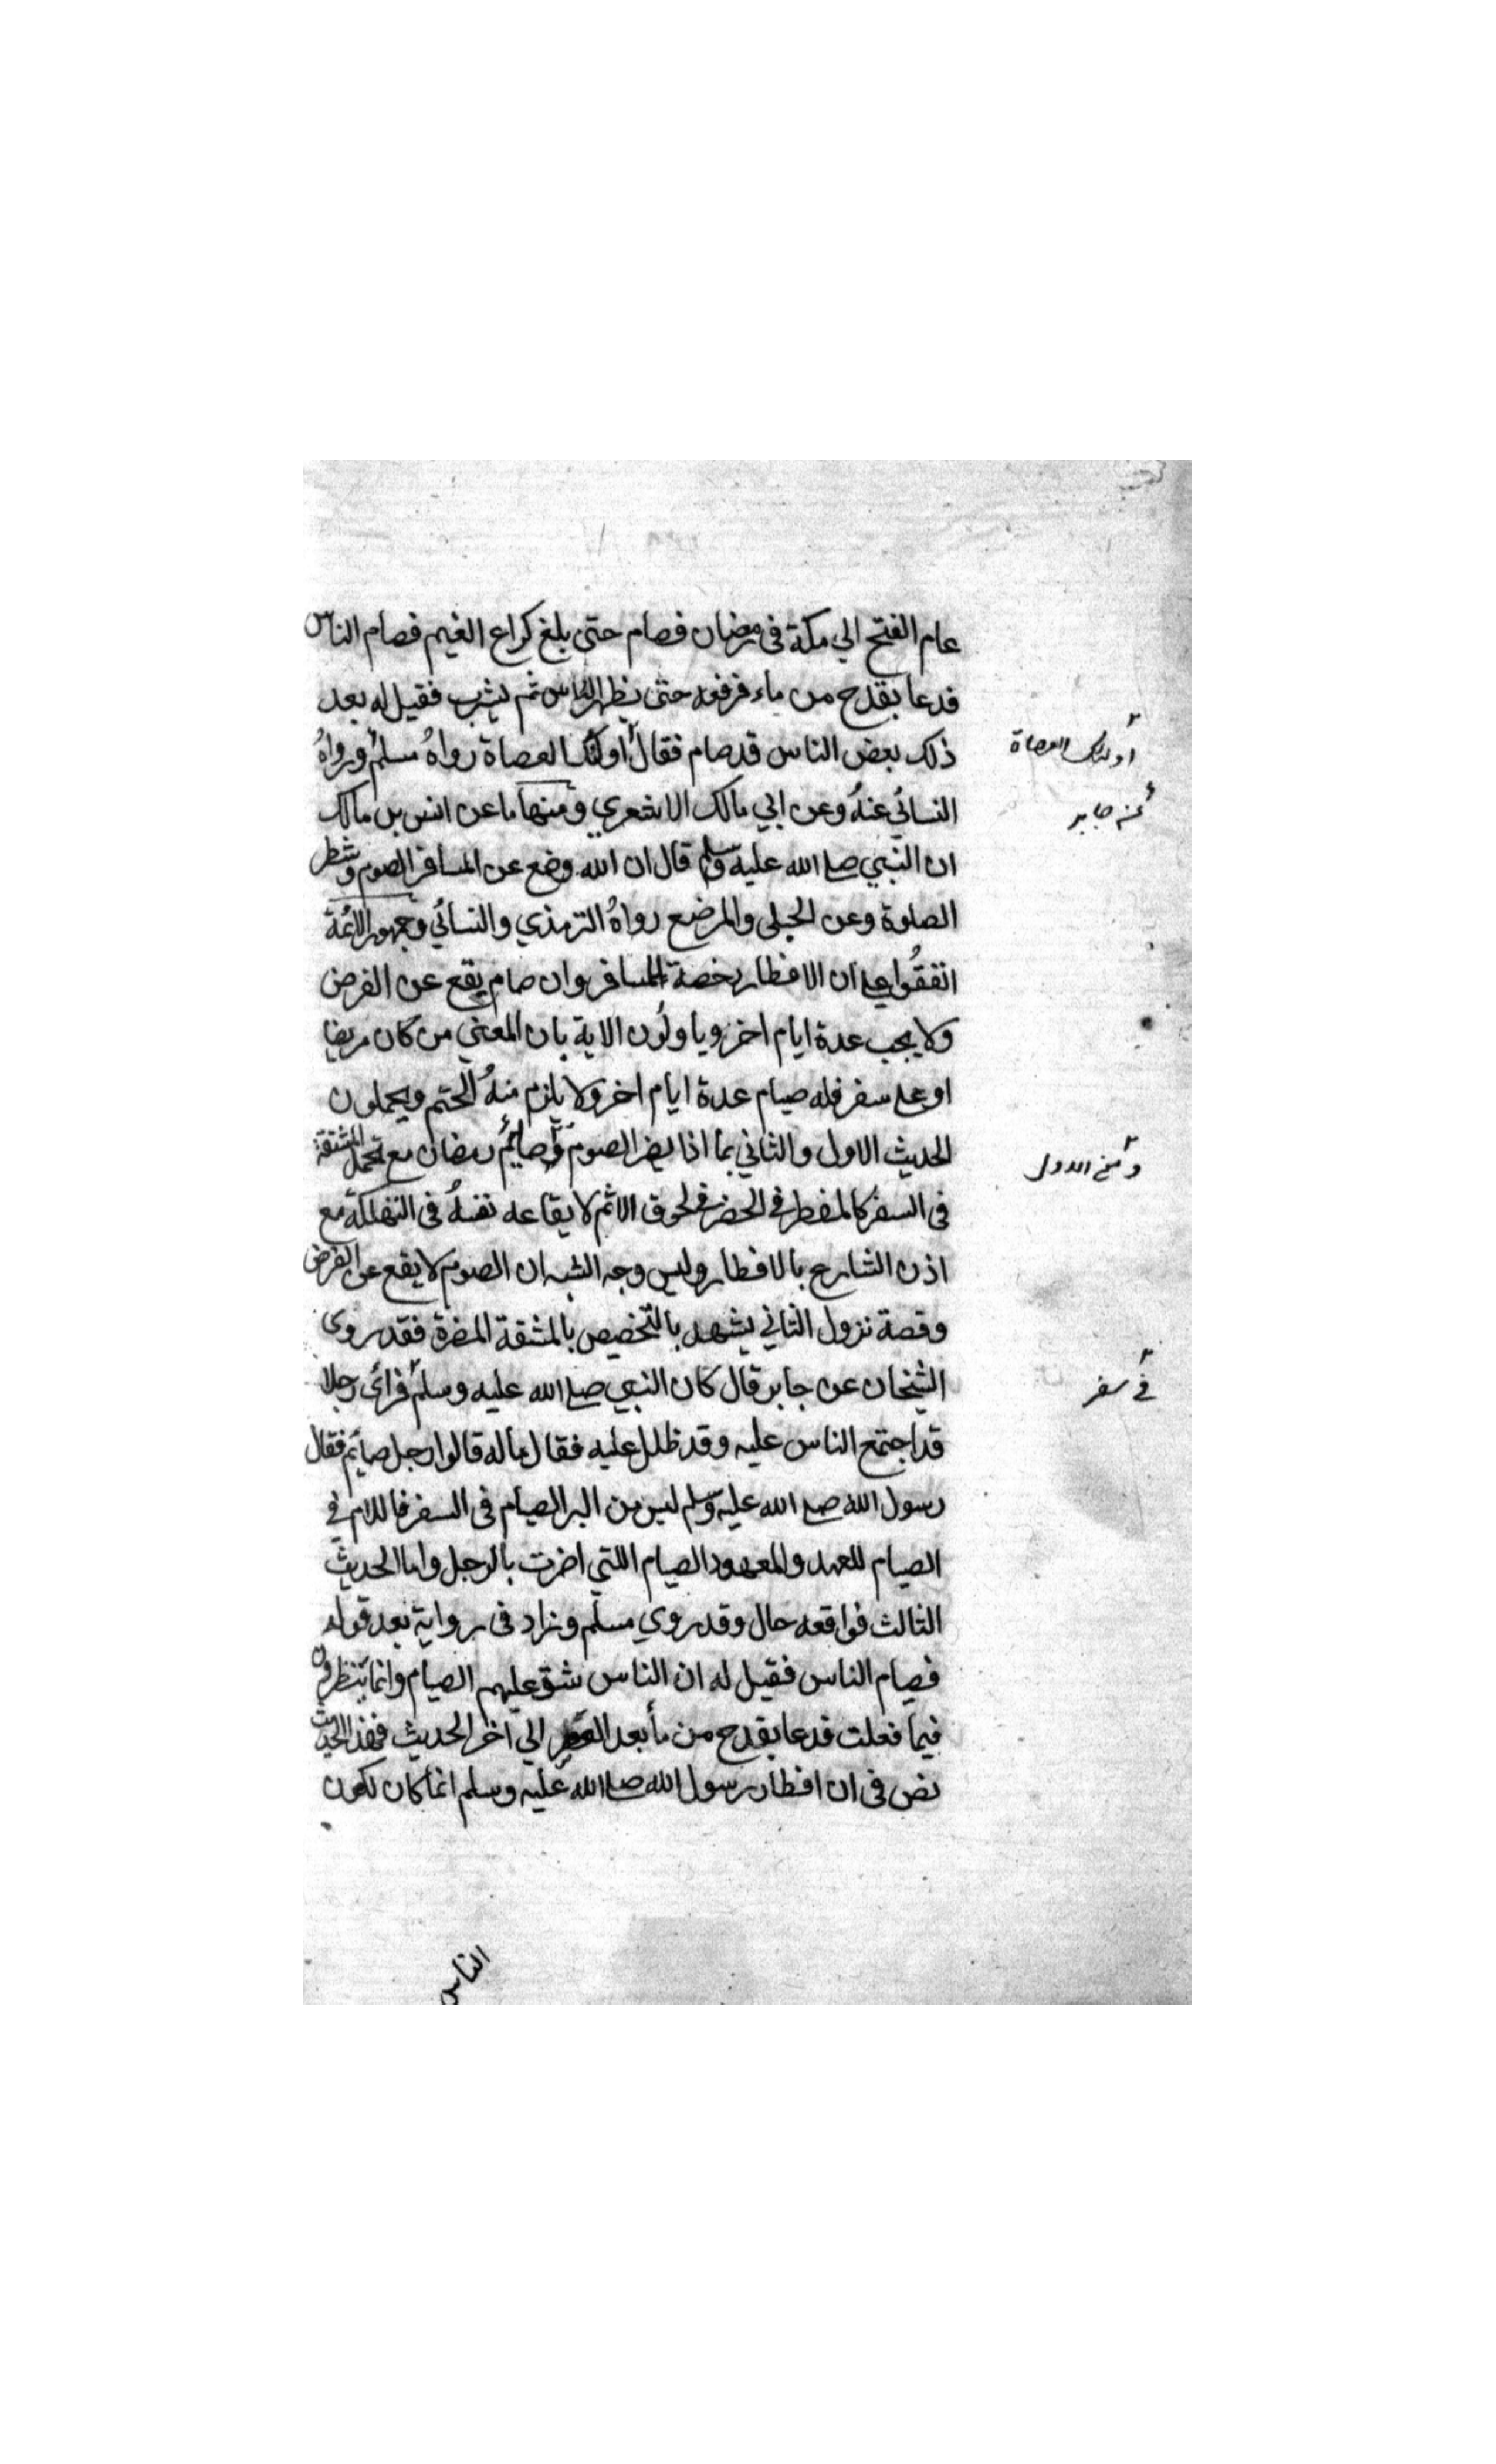 عام الفتح الي مكة فى رمضان فصام حتى بلغ كراع الغيم فصام الناس
فدعا بقدح من ماء فرفعه حتى ينظر الناس ثم يشرب فقيل له بعد
ذلك بعض الناس قد صام فقال اولئك العصاة رواه مسلم ورواه
اولئك العصاة
النسائى عنه وعن ابي مالك الاشعري ومنها ما عن انس بن مالك
عن جابر
ان النبي صلى الله عليه وسلم قال ان الله وضع عن المسافر الصوم وشطر
الصلوة وعن الحبلى والمرضع رواه الترمذي والنسائي وجمهور الائمة
اتفقوا على ان الافطار رخصة للمسافر وان صام يقع عن الفرض
ولا يجب عدة ايام اخر وياولون الاية بان المعنى من كان مريضا
او على سفر فله صيام عدة ايام اخر ولا يلزم منه الحتم ويحملون
الحديث الاول والثاني بما اذا يضر الصوم وصايم رمضان مع تحمل المشقة
فى السفر كالمفطر فى الحضر فى لحوق الاثم لايقاعه نفسه فى التهلكة مع
اذن الشارع بالافطار وليس وجه الشبه ان الصوم لا يقع عن الفرض
وقصة نزول الثاني يشهد بالتخصيص بالمشقة المضرة فقد روى
الشيخان عن جابر قال كان النبي صلى الله عليه وسلم فرأى رجلا
فى سفر
قد اجتمع الناس عليه وقد ظلل عليه فقال ماله قالوا رجل صايم فقال
رسول الله صلى الله عليه وسلم ليس من البر الصيام فى السفر فاللام فى
الصيام للعهد والمعهود الصيام اللتي اضرت بالرجل واما الحديث
الثالث فواقعه حال وقد روي مسلم وزاد فى رواية بعد قوله
فصام الناس فقيل له ان الناس شق عليهم الصيام وانما ينظرون
فيما فعلت فدعا بقدح من ماء بعد العصر الي اخر الحديث فهذا الحديث
نص فى ان افطار رسول الله صلى الله عليه وسلم انما كان لكون
الناس